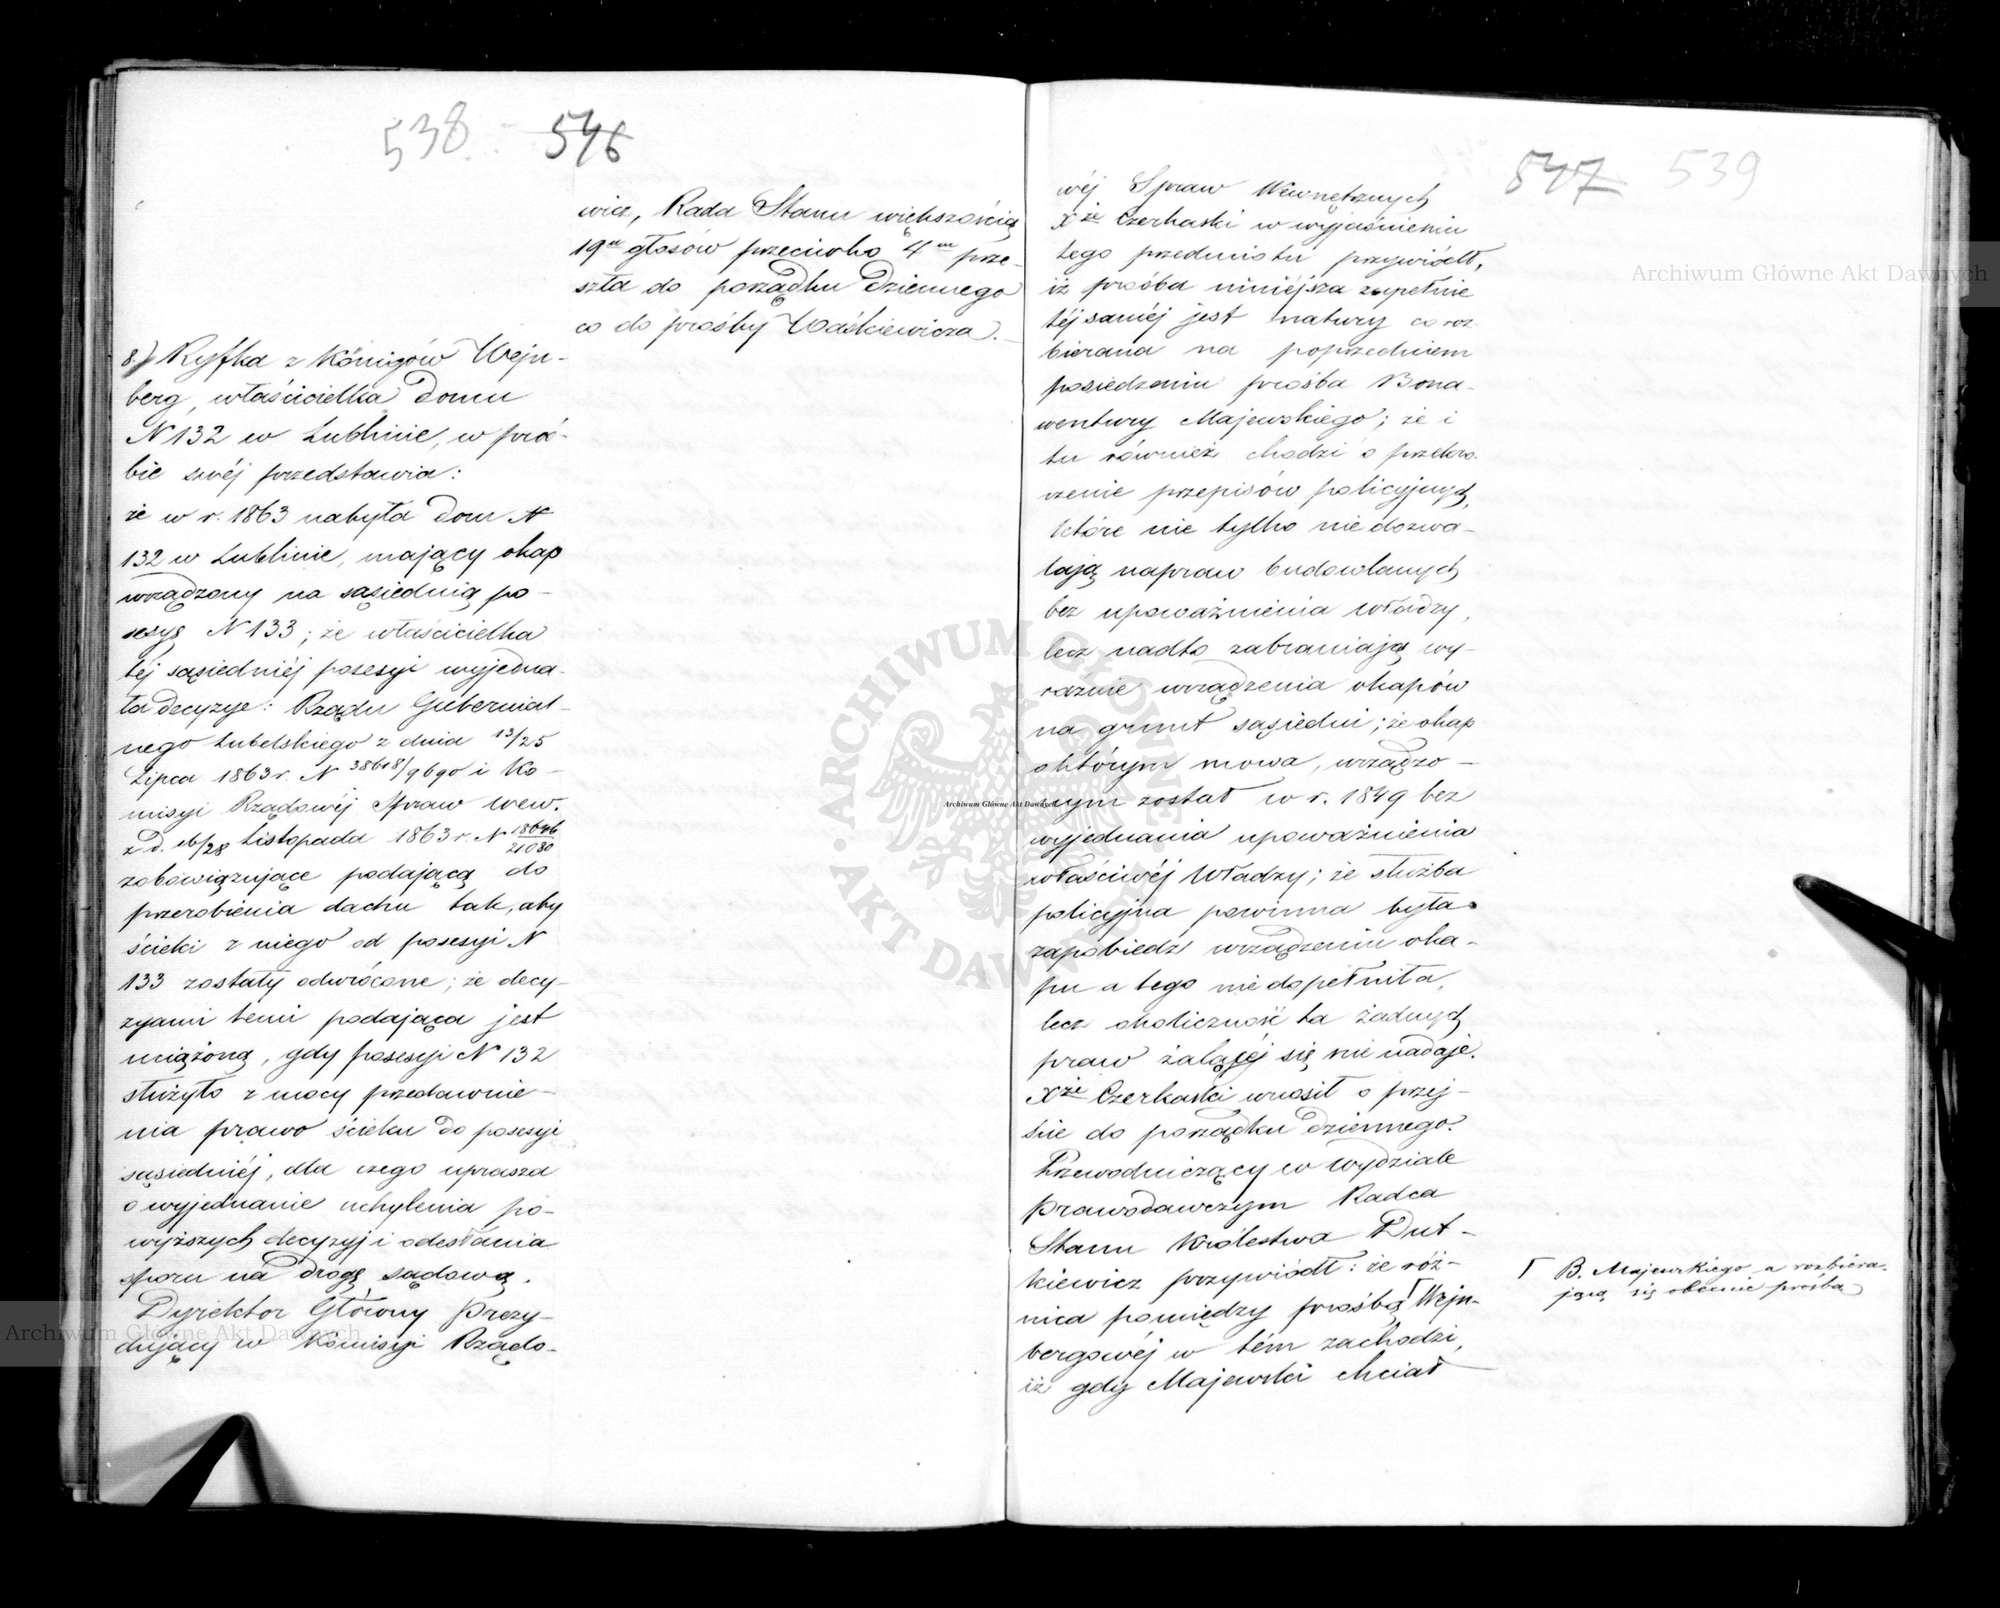 538 546
wicz, Rada Stanu większością
19u głosów przeciwko 4m prze-
szła do porządku dziennego
co do prośby Waśkiewicza.
8.) Ryfka z Königów Wejn-
berg, właścicielka domu
N 132 w Lublinie, w proś-
bie swéj przedstawia:
że w r. 1863 nabyła dom N
132 w Lublinie, mający okap
urządzony na sąsiednią po-
sesyę N 133; że właścicielka
téj sąsiedniéj posesyi wyjedna-
ła decyzye: Rządu Gubernial-
nego Lubelskiego z dnia 13/25
Lipca 1863 r. N 38618/9690 i Ko-
misyi Rządowéj Spraw Wew.
z d. 16/28 Listopada 1863 r. N 18646/21080
zobowiązujące podającą do
przerobienia dachu tak, aby
ścieki z niego od posesyi N
133 zostały odwrócone; że decy-
zyami temi podająca jest
uciążoną, gdy posesyi N 132
służyło z mocy przedawnie-
nia prawo ścieku do posesyi
sąsiedniéj, dla czego uprasza
o wyjednanie uchylenia po-
wyższych decyzyj i odesłania
sporu na drogę sądową.
Dyrektor Główny Prezy-
dujący w Komisyi Rządo-
547 539
wéj Spraw Wewnętrznych
Xże Czerkaski w wyjaśnieniu
tego przedmiotu przywiódł,
iż prośba niniéjsza zupełnie
téj saméj jest natury co roz-
bierana na poprzedniem
posiedzeniu prośba Bona-
wentury Majewskiego; że i
tu również chodzi o przekro-
czenie przepisów policyjnych,
które nie tylko nie dozwa-
lają napraw budowlanych
bez upoważnienia władzy,
lecz nadto zabraniają wy-
raźnie urządzenia okapów
na grunt sąsiedni; że okap
o którym mowa, urządzo-
nym został w r. 1849 bez
wyjednania upoważnienia
właściwéj Władzy; że służba
policyjna powinna była
zapobiedz urządzeniu oka-
pu a tego nie dopełniła,
lecz okoliczność ta żadnych
praw żalącéj się nie nadaje.
Xże Czerkaski wnosił o przej-
ście do porządku dziennego.
Przewodniczący w Wydziale
Prawodawczym Radca
Stanu Królestwa Dut-
kiewicz przywiódł: że róż-
nica pomiędzy prośbą Γ Wejn-
bergowéj w tém zachodzi,
iż gdy Majewski chciał
Γ B. Majewskiego a rozbiera-
jącą się obecnie prośbą
Archiwum Główne Akt Dawnych
Archiwum Główne Akt Dawnych
Archiwum Główne Akt Dawnych
ARCHIWUM GŁÓWNE AKT DAWNYCH